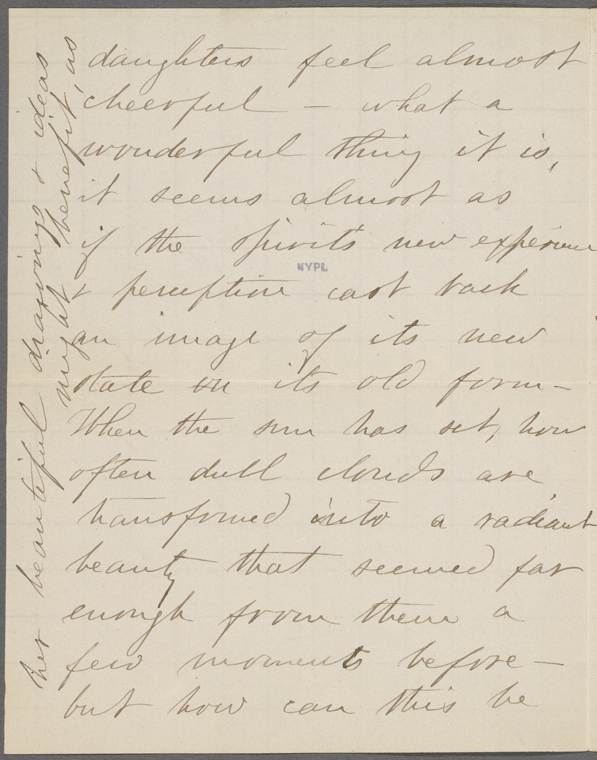 daughters feel almost
cheerful – what a
wonderful thing it is,
it seems almost as
if the spirit's new experience
& perception cast back
an image of its new
state on its old form –
When the sun has set, how
often dull clouds are
transformed into a radiant
beauty that seemed far
enough from them a
few moments before –
but how can this be
her beautiful drawings & ideas
might benefit, as
NYPL